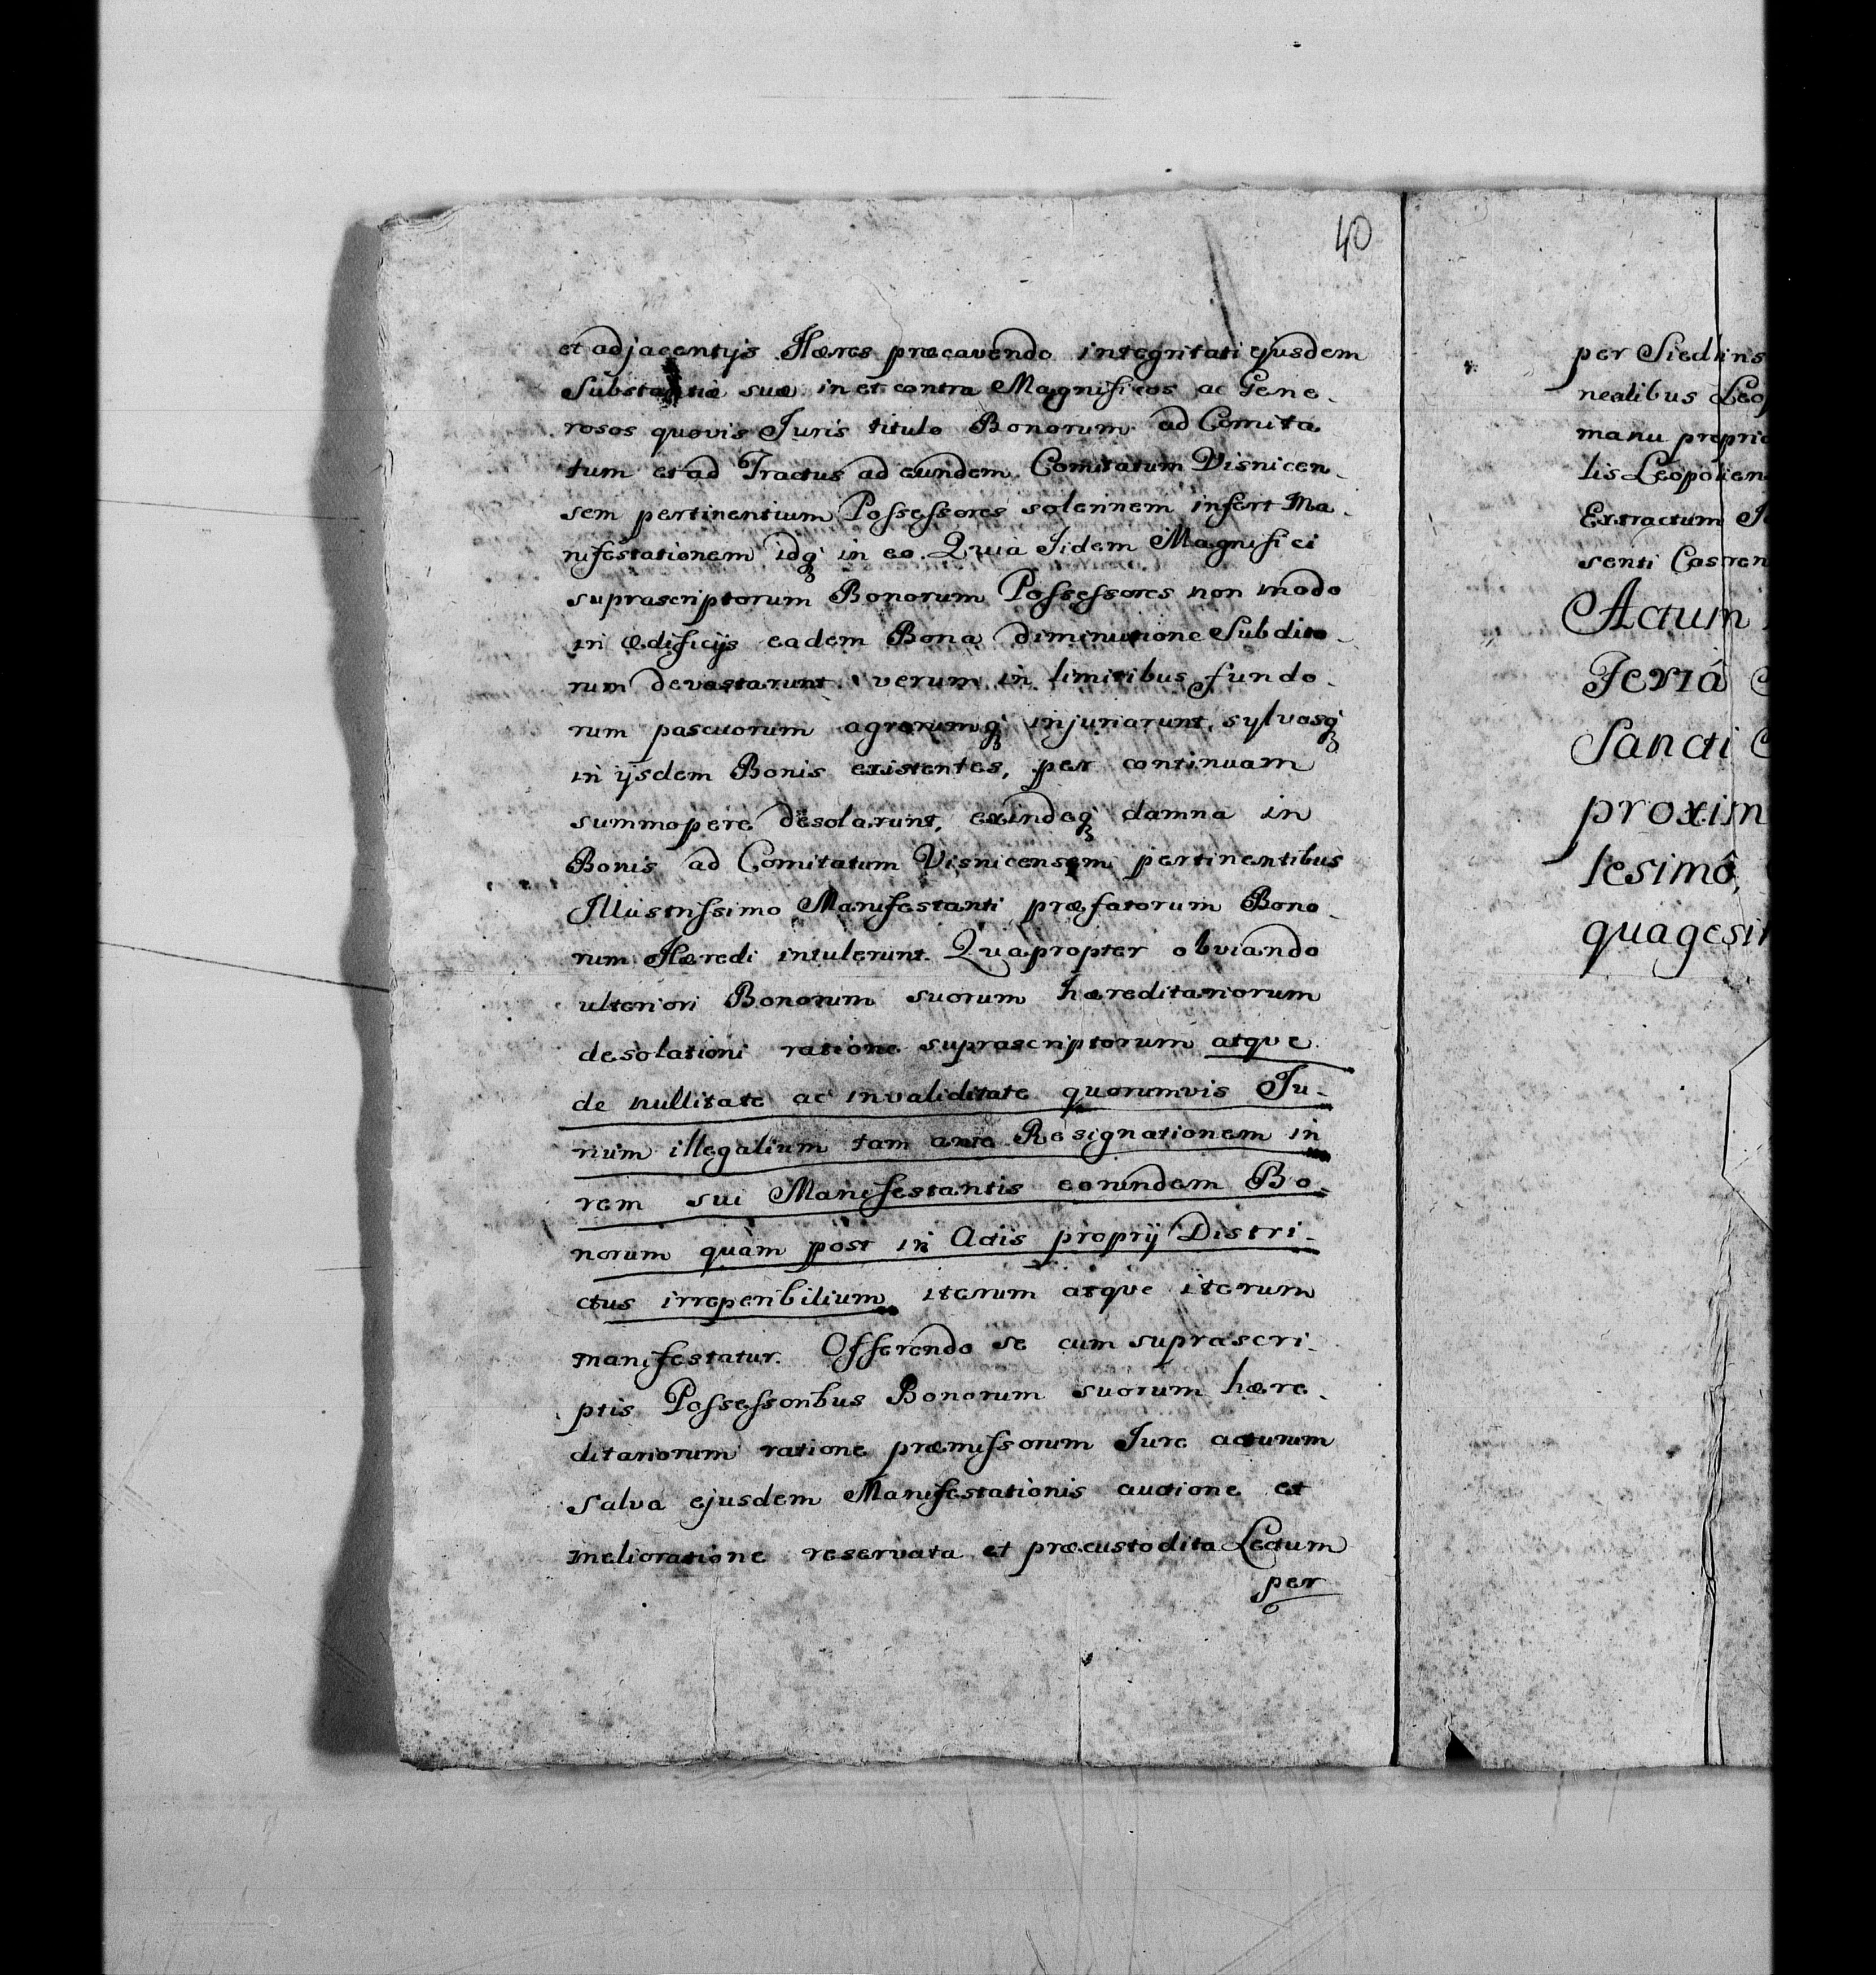 40
et adjacentijs Hæres præcavendo integritati ejusdem
Substantiæ suæ in et contra Magnificos ac Gene-
rosos quovis Juris titulo Bonorum ad Comita
tum et ad Tractus ad eundem Comitatum Visnicen-
sem pertinentium Possessores solennem infert Ma-
nifestationem idq; in eo. Quia Iidem Magnifici
suprascriptorum Bonorum Possessores non modo
in ædificijs eadem Bona diminutione Subdito-
rum devastarunt verum in limitibus fundo-
rum pascuorum agrorumq; injuriarunt, sylvasq;
in ijsdem Bonis existentes, per continuam
summopere desolarunt, exindeq; damna in
Bonis ad Comitatum Visnicensem pertinentibus
Illustrissimo Manifestanti præfatorum Bono-
rum Hæredi intulerunt. Quapropter obviando
ulteriori Bonorum suorum hæreditariorum
desolationi ratione suprascriptorum atque
de nullitate ac invaliditate quorumvis Ju-
rium illegalium tam ante Resignationem in
rem sui Manifestantis eorundem Bo-
norum quàm post in Actis proprij Distri-
ctus irreperibilium iterum atque iterum
manifestatur. Offerendo se cum suprascri-
ptis Possessoribus Bonorum suorum hære-
ditariorum ratione præmissorum Jure acturum
salva ejusdem Manifestationis auctione et
melioratione reservata et præcustodita Lectum
per
per Siedlins
nealibus Leop
manu propria
lis Leopolien
Extractum
senti Castren
Actum
Feriâ
Sancti
proxim
lesimô,
quagesi